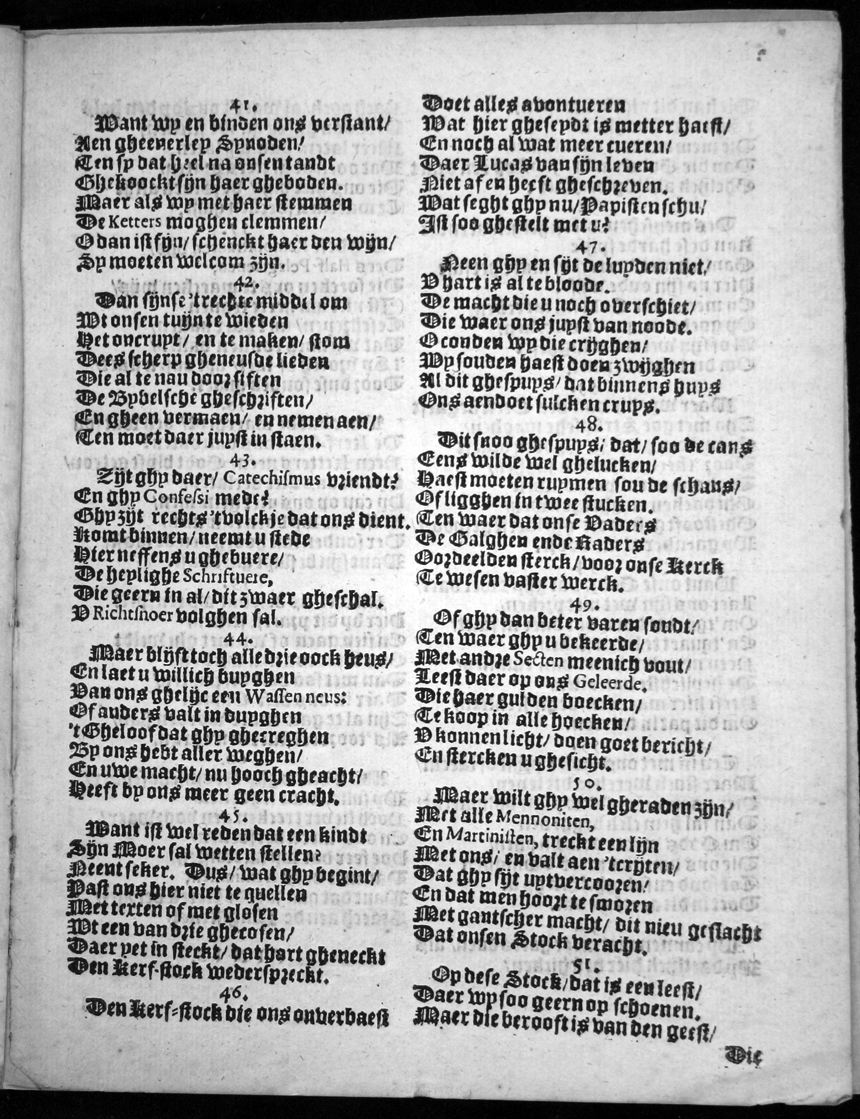 41.
Want wy en binden ons verstant/
Aen gheenerley Synoden/
Ten sy dat heel na onsen tandt
Ghekoockt sijn haer gheboden.
Maer als wy met haer stemmen
De Ketters moghen clemmen/
O dan ist fijn/ schenckt haer den wijn/
Sy moeten welcom zijn.
42.
Dan sijnse 'trechte middel om
Wt onsen tuijn te wieden
Het oncruyt/ en te maken/ stom
Dees scherp gheneusde lieden
Die al te nau doorsiften
De Bybelsche gheschriften/
En gheen vermaen/ en nemen aen/
Ten moet daer juyst in staen.
43.
Zijt ghy daer/ Catechismus vriendt?
En ghy Confessi mede?
Ghy zijt rechts 'tvolckje dat ons dient.
Komt binnen/ neemt u stede
Hier neffens u ghebuere/
De heylighe Schriftuere,
Die geern in al/ dit zwaer gheschal.
V Richtsnoer volghen sal.
44.
Maer blijft toch alle drie oock heus/
En laet u willich buyghen
Van ons ghelijc een Wassen neus:
Of anders valt in duyghen
't Gheloof dat ghy ghecreghen
By ons hebt aller weghen/
En uwe macht/ nu hooch gheacht/
Heeft by ons meer geen cracht.
45.
Want ist wel reden dat een kindt
Sijn Moer sal wetten stellen?
Neent seker. Dus/ wat ghy begint/
Past ons hier niet te quellen
Met texten of met glosen
Wt een van drie ghecosen/
Daer yet in steckt/ dat hart gheneckt
Den Kerf-stock wederspreckt.
46.
Den Kerf-stock die ons onverbaest
Doet alles avontueren
Wat hier gheseydt is metter haest/
En noch al wat meer cueren/
Daer Lucas van sijn leven
Niet af en heeft gheschreven.
Wat seght ghy nu/ Papisten schu/
Ist soo ghestelt met u?
47.
Neen ghy en sijt de luyden niet/
V hart is al te bloode.
De macht die u noch overschiet/
Die waer ons juyst van noode.
O conden wy die crijghen/
Wy souden haest doen zwijghen
Al dit ghespuys/ dat binnens huys
Ons aendoet sulcken cruys.
48.
Dit snoo ghespuys/ dat/ soo de cans
Eens wilde wel ghelucken/
Haest moeten ruymen sou de schans/
Of ligghen in twee stucken.
Ten waer dat onse Vaders
De Galghen ende Raders
Oordeelden sterck/ voor onse Kerck
Te wesen vaster werck.
49.
Of ghy dan beter varen soudt/
Ten waer ghy u bekeerde/
Met andre Secten meenich vout/
Leest daer op ons Geleerde.
Die haer gulden boecken/
Te koop in alle hoecken/
V konnen licht/ doen goet bericht/
En stercken u ghesicht.
50.
Maer wilt ghy wel gheraden zijn/
Met alle Mennoniten,
En Martinisten, treckt een lijn
Met ons/ en valt aen 'tcrijten/
Dat ghy sijt uytvercooren/
En dat men hoort te smoren
Met gantscher macht/ dit nieu geslacht
Dat onsen Stock veracht.
51.
Op dese Stock/ dat is een leest/
Daer wy soo geern op schoenen.
Maer die berooft is van den geest/
Die